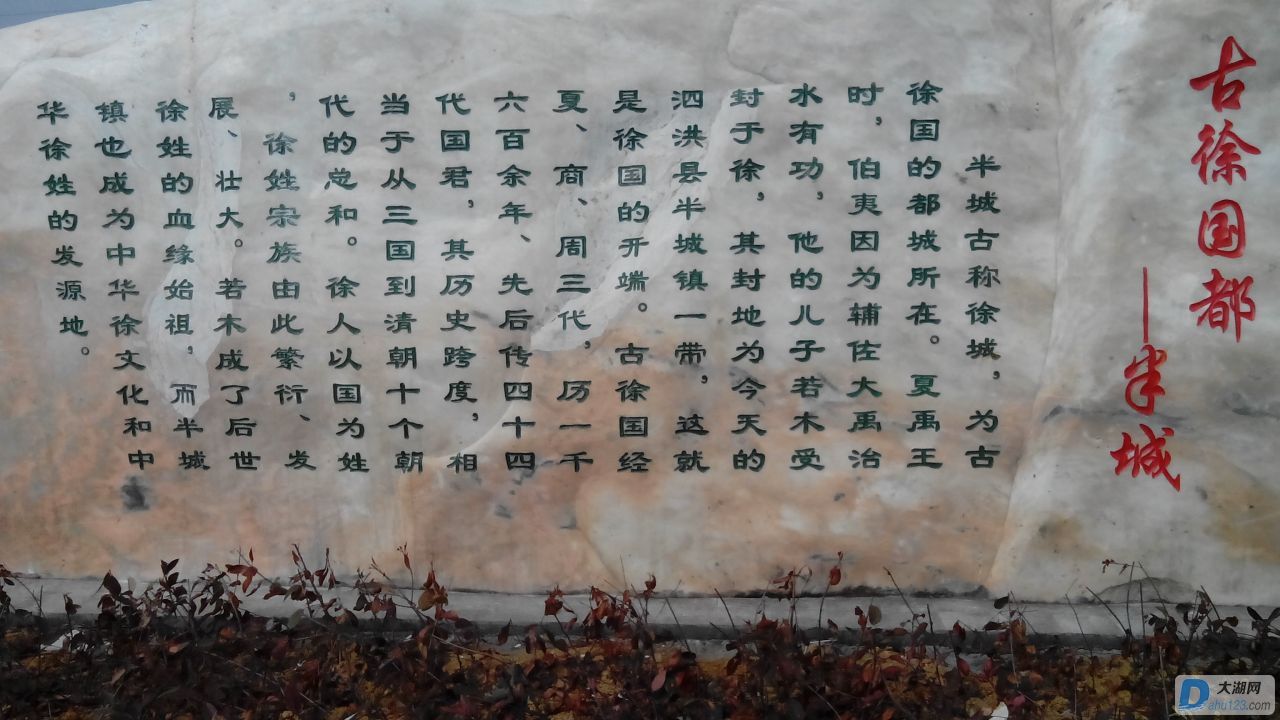 古徐国都
—半城
半城古称徐城，为古
徐国的都城所在。夏禹王
时，伯夷因为辅佐大禹治
水有功，他的儿子若木受
封于徐，其封地为今天的
泗洪县半城镇一带，这就
是徐国的开端。古徐国经
夏、商、周三代，历一千
六百余年、先后传四十四
代国君，其历史跨度，相
当于从三国到清朝十个朝
代的总和。徐人以国为姓
，徐姓宗族由此繁衍、发
展、壮大。若木成了后世
徐姓的血缘始祖，而半城
镇也成为中华徐文化和中
华徐姓的发源地。
大湖网
Dahu123.com